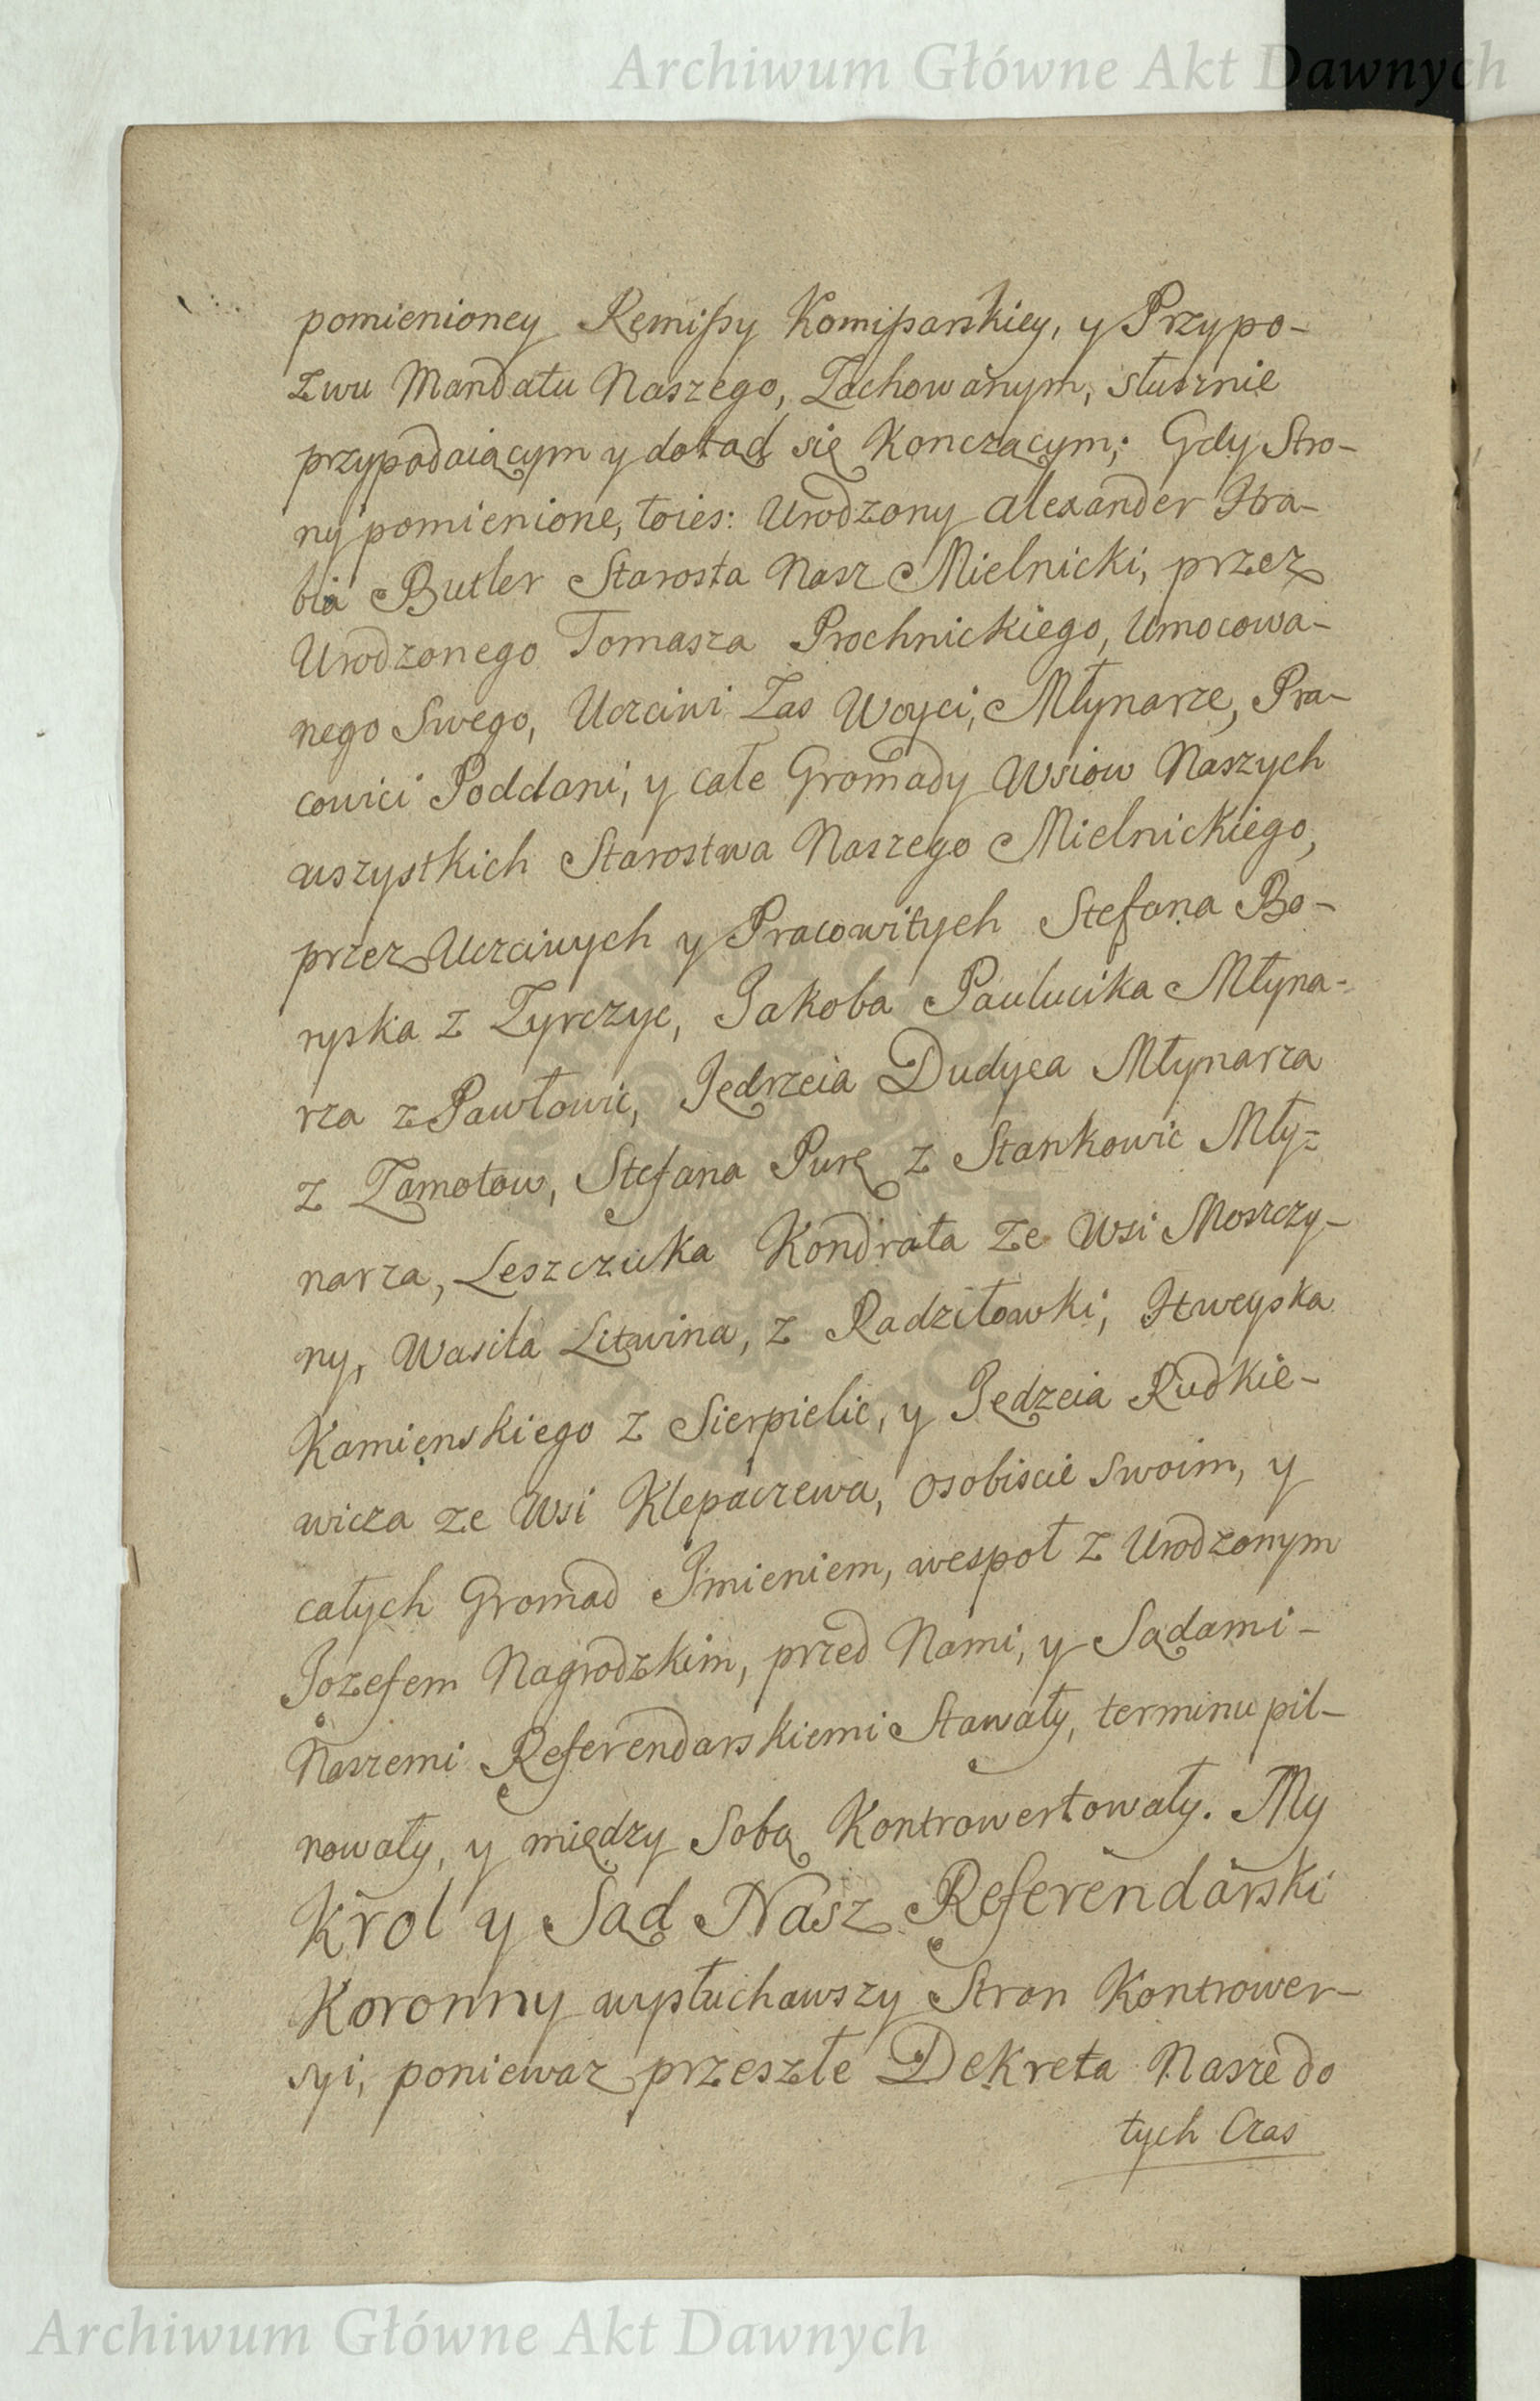 Archiwum Główne Akt Dawnych
pomienioney Remißy Komißarskiey, y Przypo-
zwu Mandatu Naszego, Zachowanym, słusznie
przypadaiącym y dotąd się Konczącym; Gdy Stro-
ny pomienione, toies: Urodzony Alexander Hra-
bia Butler Starosta Nasz Mielnicki, przez
Urodzonego Tomasza Prochnickiego, Umocowa-
nego Swego, Uczciwi Zas Woyci, Młynarze, Pra-
cowici Poddani, y całe Gromady Wsiow Naszych
wszystkich Starostwa Naszego Mielnickiego,
przez Uczciwych y Pracowitych Stefana Bo-
ryska z Zyrczyc, Jakoba Paulucika Młyna-
rza z Pawłowic, Jędrzeia Dudyca Młynarza
z Zamotow, Stefana Purę z Stankowic Mły=
narza, Leszczuka Kondrata ze Wsi Moszczy-
ny, Wasila Litwina, z Radziłowki, Hweyska
Kamienskiego z Sierpielic, y Jędzeia Rudkie-
wicza ze Wsi Klepaczewa, osobiscie swoim, y
całych Gromad Jmieniem, wespoł z Urodzonym
Jozefem Nagrodzkim, przed Nami, y Sądami-
Naszemi Referendarskiemi Stawały, terminu pil-
nowały, y między Sobą Kontrowertowały. My
Krol y Sąd Nasz Referendarski
Koronny wysłuchawszy Stron Kontrower-
syi, poniewaz przeszłe Dekreta Nasze do
tych Czas
Archiwum Główne Akt Dawnych